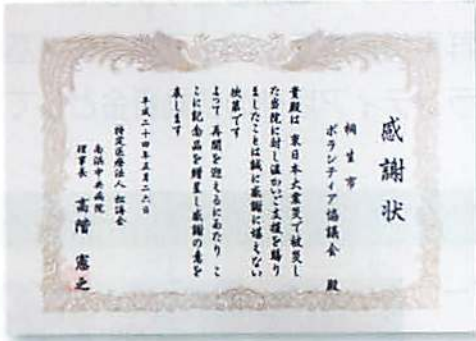 感謝状
桐生市
ボランティア協議会 殿
貴殿は 東日本大震災で被災し
た当院に対し温かいご支援を賜り
ましたことは誠に感謝に堪えない
次第です
よって 再開を迎えるにあたり こ
こに記念品を贈呈し感謝の意を
表します
平成二十四年三月二六日
特定医療法人 松濤会
南浜中央病院
理事長 高階 憲之